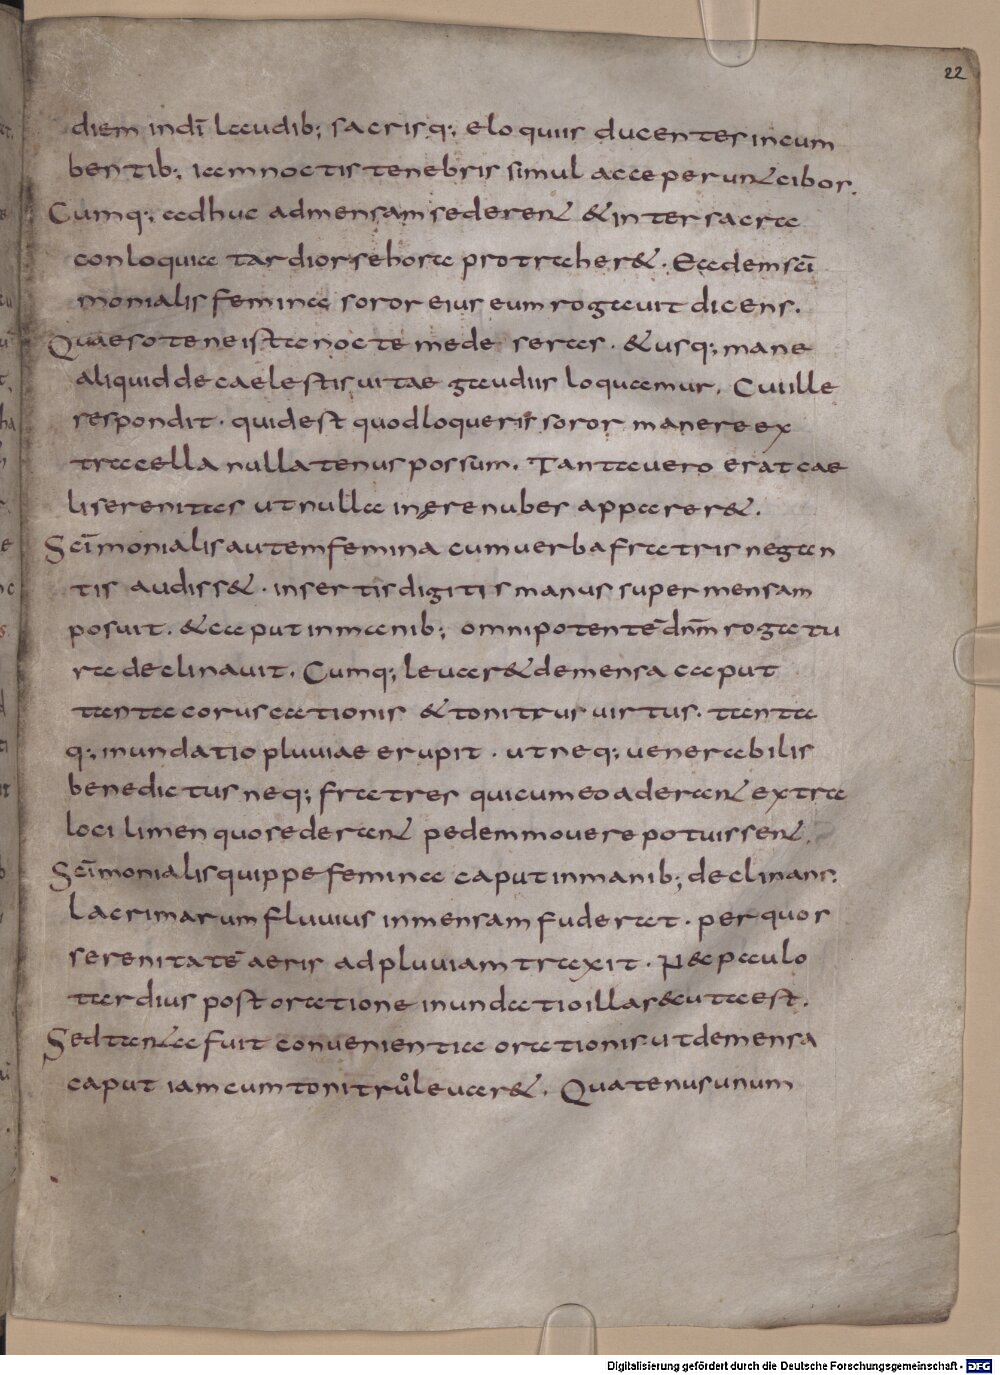 22
diem in dī laudib; sacrisq; eloquiis ducentes incum
bentib; iam noctis tenebris simul acceperunt cibos.
Cumq; adhuc ad mensam sederent & inter sacra
conloquia tardior se hora protraher&. Eadem scī
monialis femina soror eius eum rogauit dicens.
Quaeso te ne ista nocte me deseras. & usq; mane
aliquid de caelestis uitae gaudiis loquamur. Cui ille
respondit. quid est quod loqueris soror manere ex
tra cella nullatenus possum. Tanta uero erat cae
li serenitas ut nulla in aere nubes apparer&.
Scīmonialis autem femina cum uerba fratris negan
tis audiss&. insertis digitis manus super mensam
posuit. & caput in manib; omnipotentē dnm̄ rogatu
ra declinauit. Cumq; leuar& de mensa caput
tanta coruscationis & tonitrus uirtus. tanta
q; inundatio pluuiae erupit. ut neq; uenerabilis
benedictus neq; fratres qui cum eo aderant extra
loci limen quo sederant pedem mouere potuissent.
Scīmonialis quippe femina caput in manib; declinans.
lacrimarum fluuius in mensam fuderat. per quos
serenitatē aeris ad pluuiam traxit. N& paulo
tardius post oratione inundatio illa s&uta est.
Sed tanta fuit conuenientia orationis ut de mensa
caput iam cum tonitruo leuar&. Quatenus unum
Digitalisierung gefördert durch die Deutsche Forschungsgemeinschaft - DFG